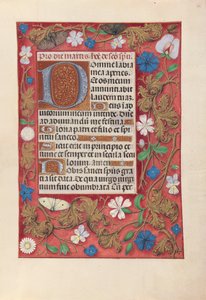 Domine labi
a mea aperies.
Et os meum
annunciabit
laudem tuam.
Deus in ad
iutorium meum intende. Domi
ne ad adiuvandum me festina.
Gloria patri et filio et spi
Sicut erat in principio et
nunc et semper et in secula secu
lorum. Amen.
Nobis sancti spiritus gra
tia sit data. De qua virgo virgi
num fuit obumbrata. Cum per